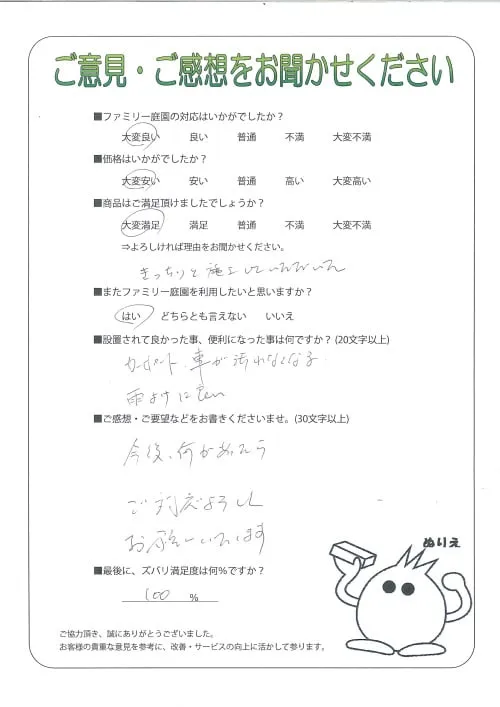 ご意見・ご感想をお聞かせください
■ファミリー庭園の対応はいかがでしたか？
大変良い 良い 普通 不満 大変不満
■価格はいかがでしたか？
大変安い 安い 普通 高い 大変高い
■商品はご満足頂けましたでしょうか？
大変満足 満足 普通 不満 大変不満
⇒よろしければ理由をお聞かせください。
きっちりと施工していただいた
■またファミリー庭園を利用したいと思いますか？
はい どちらとも言えない いいえ
■設置されて良かった事、便利になった事は何ですか？(20文字以上)
カーポート 車が汚れなくなる
雨よけに良い
■ご感想・ご要望などをお書きくださいませ。(30文字以上)
今後、何かあれたら
ご対応よろしく
お願いいたします
ぬりえ
■最後に、ズバリ満足度は何％ですか？
100 %
ご協力頂き、誠にありがとうございました。
お客様の貴重な意見を参考に、改善・サービスの向上に活かして参ります。